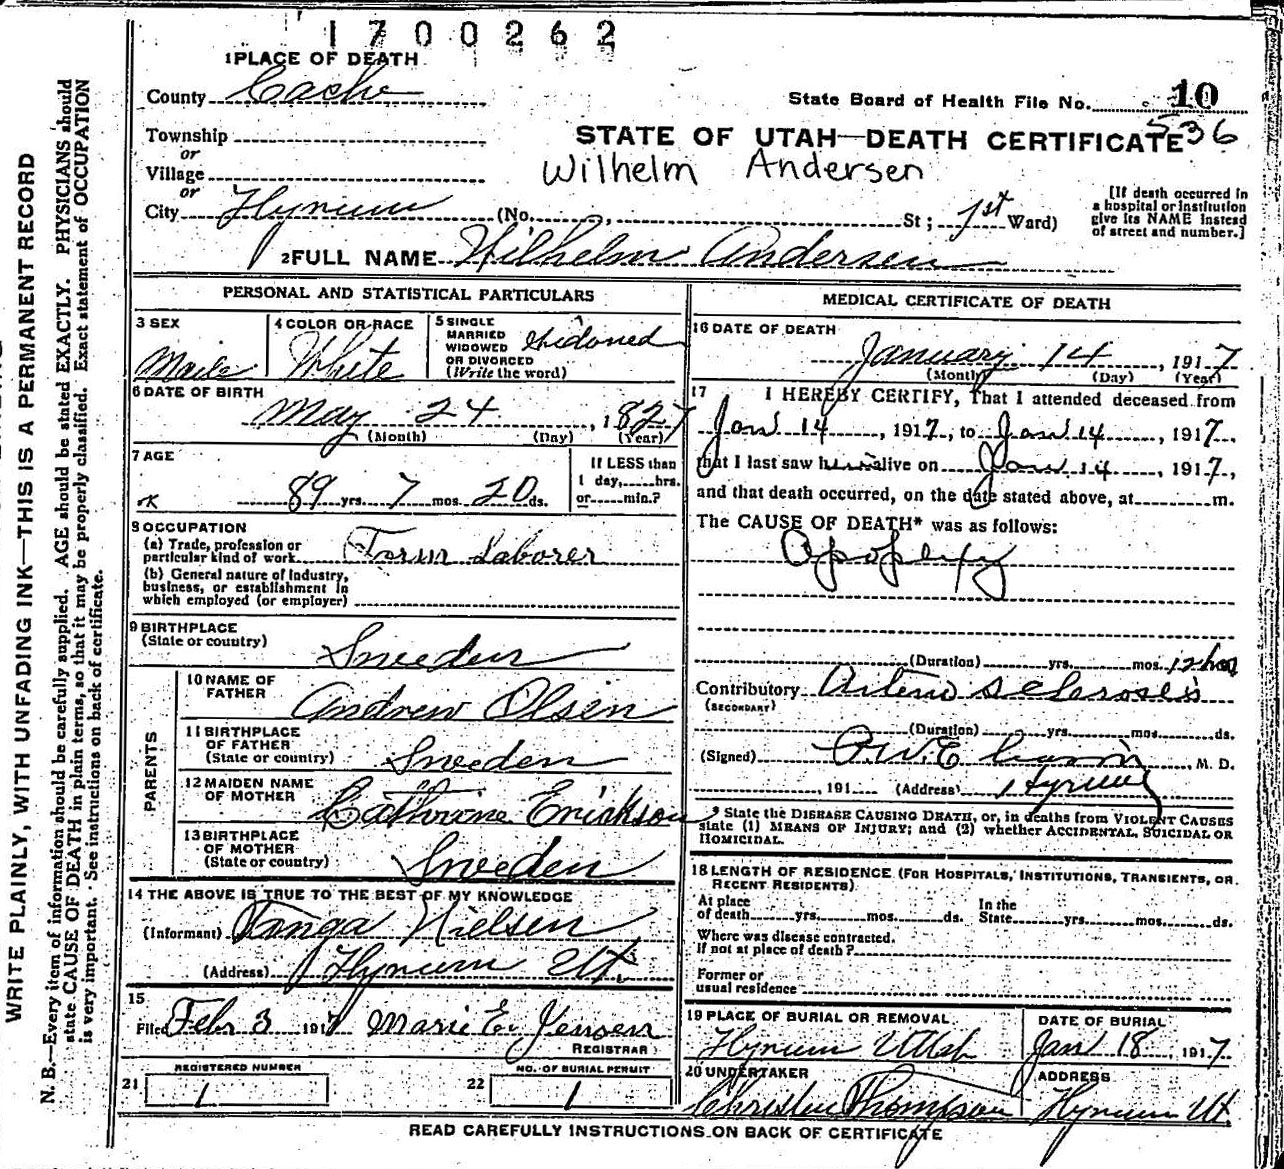 1700262
1 PLACE OF DEATH
County Cache
State Board of Health File No. 10
536
Township
or
Village
or
STATE OF UTAH—DEATH CERTIFICATE
Wilhelm Andersen
City Hyrum (No. , St; 1st Ward)
[If death occurred in
a hospital or institution
give its NAME instead
of street and number.]
2 FULL NAME Wilhelm Andersen
PERSONAL AND STATISTICAL PARTICULARS
3 SEX
Male
4 COLOR OR RACE
White
5 SINGLE
MARRIED
WIDOWED
OR DIVORCED
(Write the word)
Widowed
6 DATE OF BIRTH
May 24, 1827
(Month) (Day) (Year)
7 AGE
89 yrs. 7 mos. 20 ds.
If LESS than
1 day, hrs.
or min.?
8 OCCUPATION
(a) Trade, profession or
particular kind of work Farm Laborer
(b) General nature of industry,
business, or establishment in
which employed (or employer)
9 BIRTHPLACE
(State or country)
Sweeden
PARENTS
10 NAME OF
FATHER
Andrew Olsen
11 BIRTHPLACE
OF FATHER
(State or country)
Sweeden
12 MAIDEN NAME
OF MOTHER
Cathrine Erickson
13 BIRTHPLACE
OF MOTHER
(State or country)
Sweeden
14 THE ABOVE IS TRUE TO THE BEST OF MY KNOWLEDGE
(Informant) Nielsen
(Address) Hyrum Ut.
15
Filed Feb 3 1917 Marie E. Jensen
REGISTRAR
21 REGISTERED NUMBER
1
22 NO. OF BURIAL PERMIT
1
MEDICAL CERTIFICATE OF DEATH
16 DATE OF DEATH
January 14, 1917
(Month) (Day) (Year)
17 I HEREBY CERTIFY, That I attended deceased from
Jan 14, 1917, to Jan 14, 1917,
that I last saw him alive on Jan 14, 1917,
and that death occurred, on the date stated above, at m.
The CAUSE OF DEATH* was as follows:
Apoplexy
(Duration) yrs. mos. 12 hrs
Contributory Arterio sclerosis
(SECONDARY)
(Duration) yrs. mos. ds.
(Signed) M. D.
, 191 (Address) Hyrum
* State the DISEASE CAUSING DEATH, or, in deaths from VIOLENT CAUSES
state (1) MEANS OF INJURY; and (2) whether ACCIDENTAL, SUICIDAL OR
HOMICIDAL.
18 LENGTH OF RESIDENCE (FOR HOSPITALS, INSTITUTIONS, TRANSIENTS, OR
RECENT RESIDENTS)
At place
of death yrs. mos. ds.
In the
State yrs. mos. ds.
Where was disease contracted.
If not at place of death?
Former or
usual residence
19 PLACE OF BURIAL OR REMOVAL
Hyrum Utah
DATE OF BURIAL
Jan 18, 1917
20 UNDERTAKER
Thompson
ADDRESS
Hyrum Ut
READ CAREFULLY INSTRUCTIONS ON BACK OF CERTIFICATE
WRITE PLAINLY, WITH UNFADING INK—THIS IS A PERMANENT RECORD
N. B.—Every item of information should be carefully supplied. AGE should be stated EXACTLY. PHYSICIANS should
state CAUSE OF DEATH in plain terms, so that it may be properly classified. Exact statement of OCCUPATION
is very important. See instructions on back of certificate.